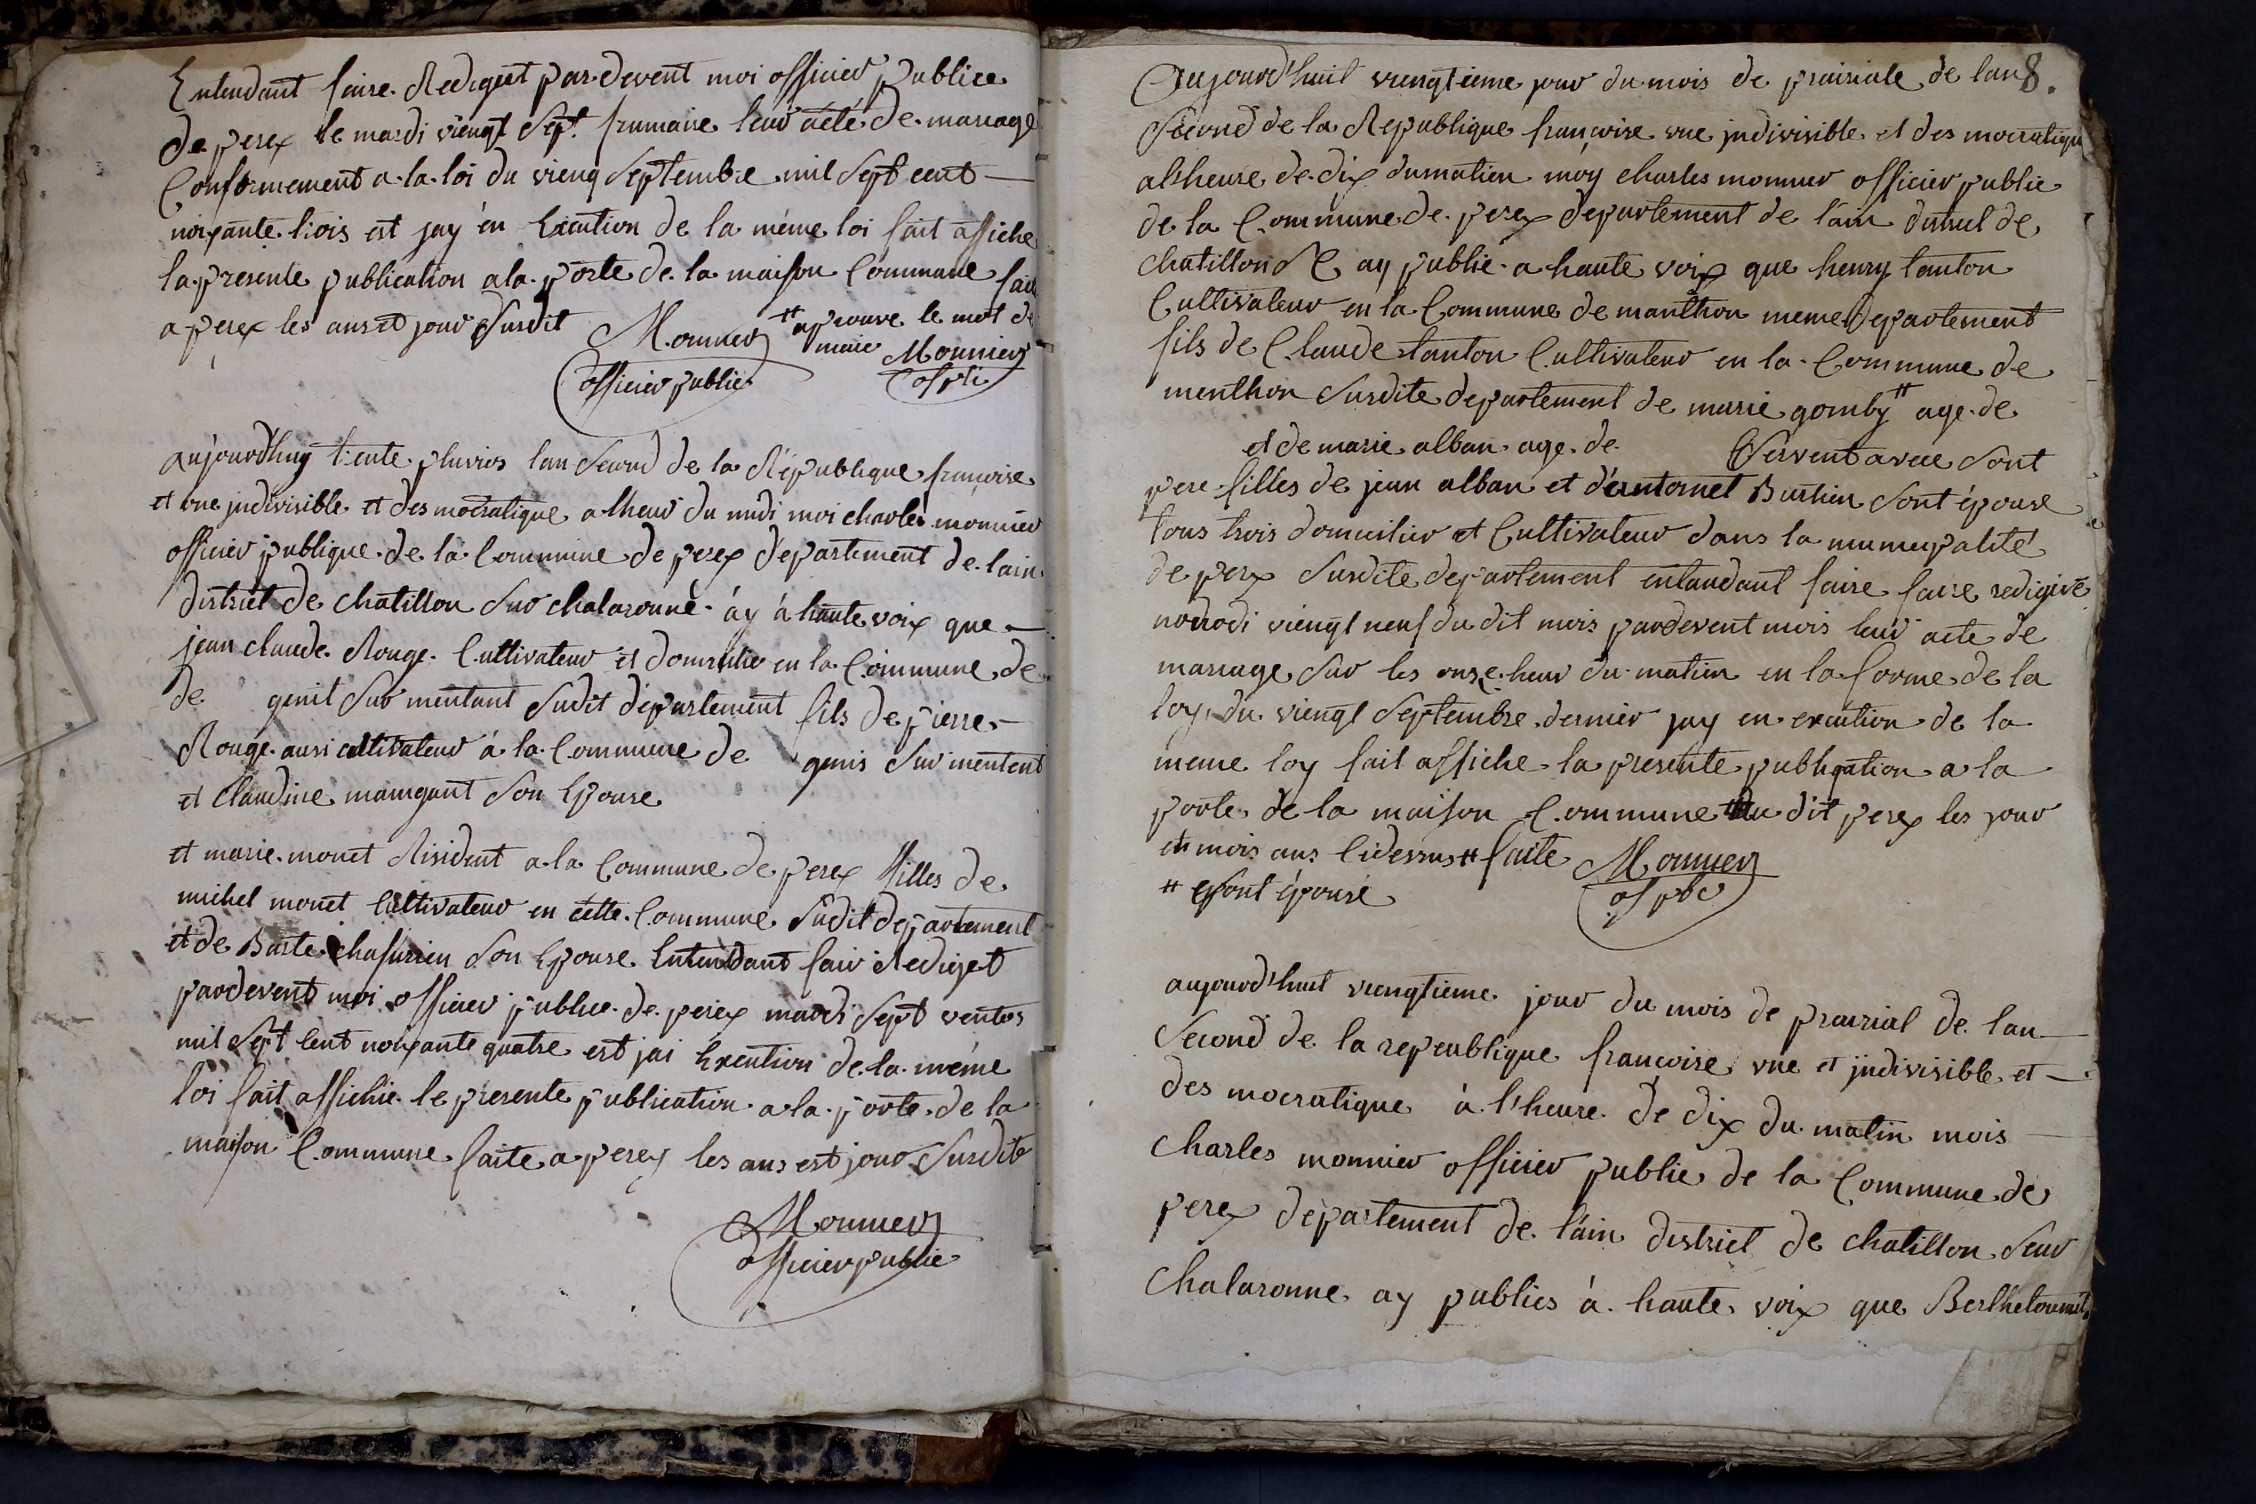 Entendant faire Rediget par devent moi officier publice
de perex le mardi viengt Sept frumaire leur acte de mariage
Conformement a la loi du vieng Septembre mil Sept cent —
noixante trois est jay én Execution de la méme loi fait affiche
la presente publication a la porte de la maison Commune fait
a perex les ans et jour Susdit Monnier # aprouve le mot de
maie Monnier
officier public of pli
aujourdhuy trente pluvios lan Second de la République françoise
et vne jndivisible et des mocratique a lheur du midi moi charles monnier
officier publique de la Commune de perex département de lain
district de chatillon Sur chalaronne áy á haute voix que —
jean claude Rouge Cultivateur et domicilie en la Commune de
de genit Sur mentant Sudit département fils de pierre —
Rouge ausi cultivateur á la Commune de genis Sur mentent
et Claudine maingant Son Epouse
et marie monet Résident a la Commune de perex filles de
michel monet Cultivateur en cette Commune Sudit département
et de Baste Son Epouse Entendant fair Rediget
pardevent moi officier publice de perex mardi Sept ventos
mil Sept Cent noixante quatre est jai Execution de la méme
loi fait affichie le presente publication a la porte de la
maison Commune faite a perex les ans est jour Susdit
Monnier
officier public
8.
Aujourd'huit viengtieme jour du mois de prairiale de lan
Second de la Republique françoise vne jndivisible et des mocratique
a lheure de dix dumatien moy charles monnier officier public
de la Commune de perex departement de l'ain de
chatillon S C ay publié a haute voix que henry tanton
Cultivateur en la Commune de manthon meme departement
fils de Claude tanton Cultivateur en la Commune de
menthon Susdite departement de marie gomby # age de
et de marie alban age de Servent avec Sont
pere filles de jean alban et d'éantoinet Bastien Sont épouse
tous trois domicilier et Cultivateur dans la municipalité
de perx Susdite departement entandant faire faire redigire
nodrodi viengt neuf du dit mois pardevent mois leur acte de
mariage Sur les onze heur du matien en la forme de la
loy du viengt Septembre dernier jay en execution de la
meme loy fait affiche la presente publication a la
porte de la maison Commune du dit perex les jour
et mois ans Cidessus # faite Monnier
# Sont épouse of pbc
aujourd'huit viengtieme jour du mois de prairial de lan —
Second de la repeublique françoise vne et jndivisible et —
des mocratique à l'heure de dix du matin mois —
Charles monnier officier public de la Commune de
perex département de l'ain district de chatillon Seur
Chalaronne ay publies á haute voix que Bertheloumit